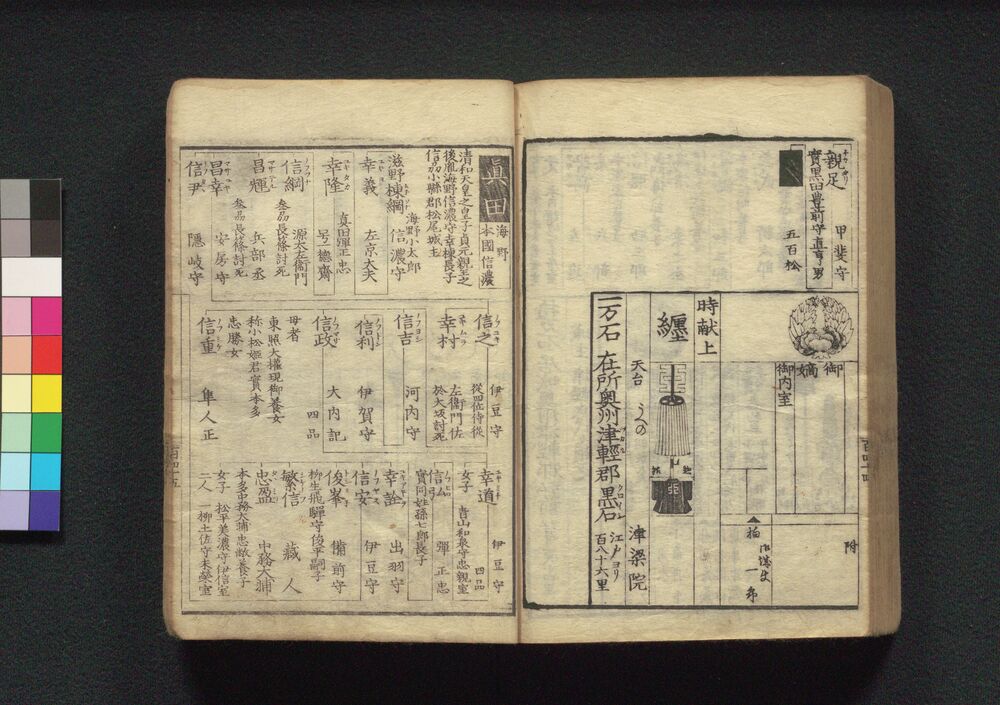 親足
甲斐守
實黒田豊前守直亨男
五百松
御嫡
御内室
附
時献上
纏
天台
津梁院
一万石
在所奥州津輕郡黒石
江戸ヨリ
百八十六里
眞田
海野
本國信濃
清和天皇之皇子貞元親王之
後胤海野信濃守幸棟長子
信刕小縣郡松尾城主
滋野棟綱
海野小太郎
信濃守
幸義
左京大夫
幸隆
真田弾正忠
号一徳齋
信綱
源太左衛門
叁刕長篠討死
昌輝
兵部丞
叁刕長篠討死
昌幸
安房守
信尹
隱岐守
信之
伊豆守
從四位侍從
幸村
左衛門佐
於大坂討死
信吉
河内守
信利
伊賀守
信政
大内記
四品
母者
東照大權現御養女
称小松姫君實本多
忠勝女
信重
隼人正
幸道
伊豆守
四品
女子
青山和泉守忠親室
信弘
彈正忠
實同姓孫七郎長子
幸詮
出羽守
信安
伊豆守
俊峯
備前守
柳生飛驒守俊平嗣子
繁信
藏人
忠盈
中務大浦
本多中務大輔忠敞養子
女子
松平美濃守伊信室
二人
一柳土佐守末榮室